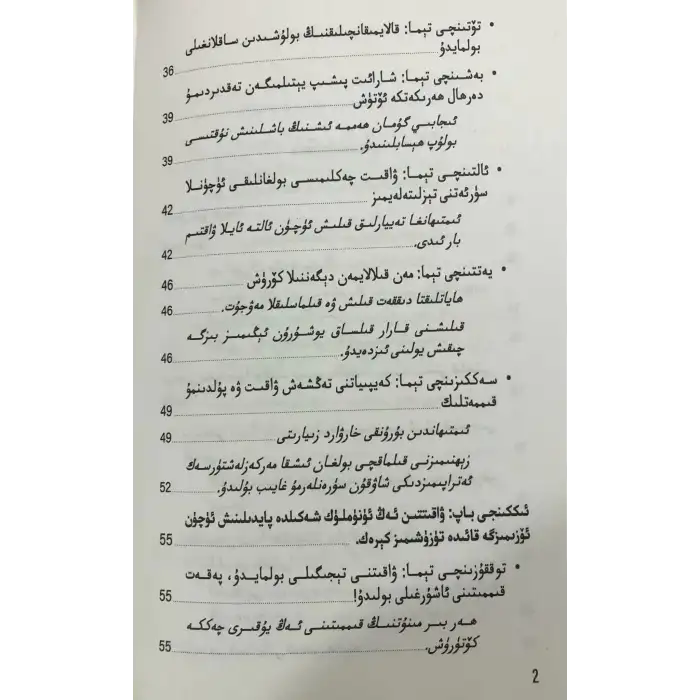 • تۆتىنچى تېما: قالايمىقانچىلىقنىڭ بولۇشىدىن ساقلانغىلى
بولمايدۇ 36
• بەشىنچى تېما: شارائىت پىشىپ يېتىلمىگەن تەقدىردىمۇ
دەرھال ھەرىكەتكە ئۆتۈش 39
ئىجابىي گۇمان ھەممە ئىشنىڭ باشلىنىش نۇقتىسى
بولۇپ ھېسابلىنىدۇ. 39
• ئالتىنچى تېما: ۋاقىت چەكلىمىسى بولغانلىقى ئۈچۈنلا
سۈرئەتنى تېزلىتەلەيمىز 42
ئىمتىھانغا تەييارلىق قىلىش ئۈچۈن ئالتە ئايلا ۋاقتىم
بار ئىدى. 42
• يەتتىنچى تېما: مەن قىلالايمەن دېگەننىلا كۆرۈش 46
ھاياتلىقتا دىققەت قىلىش ۋە قىلماسلىقلا مەۋجۇت. 46
قىلىشنى قارار قىلساق يوشۇرۇن ئېڭىمىز بىزگە
چىقىش يولىنى ئىزدەيدۇ. 46
• سەككىزىنچى تېما: كەيپىياتنى تەڭشەش ۋاقىت ۋە پۇلدىنمۇ
قىممەتلىك 49
ئىمتىھاندىن بۇرۇنقى خارۋارد زىيارىتى 49
زېھنىمىزنى قىلماقچى بولغان ئىشقا مەركەزلەشتۈرسەك
ئەتراپىمىزدىكى شاۋقۇن سۈرەنلەرمۇ غايىب بولىدۇ. 52
ئىككىنجى باپ: ۋاقىتتىن ئەڭ ئۈنۈملۈك شەكىلدە پايدىلىنىش ئۈچۈن
ئۆزىمىزگە قائىدە تۈزۈشىمىز كېرەك. 55
• توققۇزىنچى تېما: ۋاقىتنى تېجىگىلى بولمايدۇ، پەقەت
قىممىتىنى ئاشۇرغىلى بولىدۇ! 55
ھەر بىر مىنۇتنىڭ قىممىتىنى ئەڭ يۇقىرى چەككە
كۆتۈرۈش. 55
2